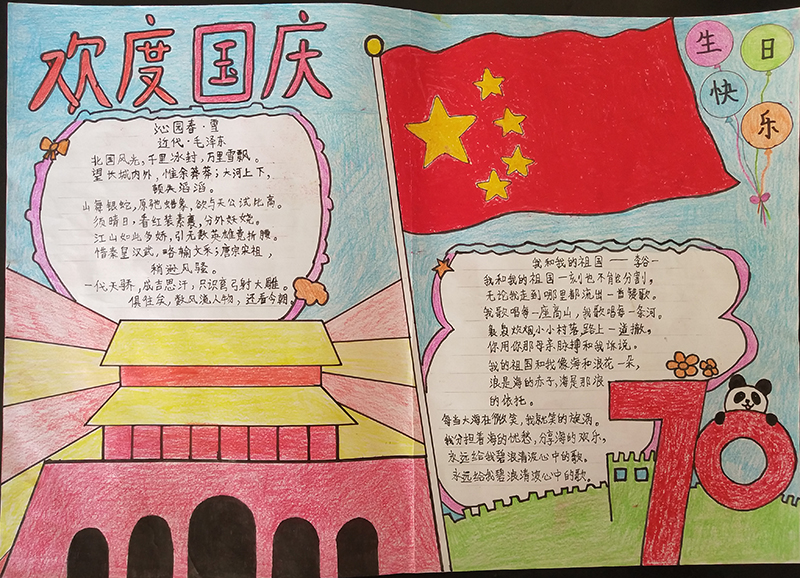 欢度国庆
沁园春·雪
近代·毛泽东
北国风光,千里冰封,万里雪飘。
望长城内外,惟余莽莽;大河上下,
顿失滔滔。
山舞银蛇,原驰蜡象,欲与天公试比高。
须晴日,看红装素裹,分外妖娆。
江山如此多娇,引无数英雄竞折腰。
惜秦皇汉武,略输文采;唐宗宋祖,
稍逊风骚。
一代天骄,成吉思汗,只识弯弓射大雕。
俱往矣,数风流人物,还看今朝。
生日快乐
我和我的祖国——李谷一
我和我的祖国一刻也不能分割,
无论我走到哪里都流出一首赞歌。
我歌唱每一座高山,我歌唱每一条河。
袅袅炊烟小小村落,路上一道撤。
你用你那母亲脉搏和我诉说。
我的祖国和我像海和浪花一朵,
浪是海的赤子,海是那浪
的依托。
每当大海在微笑,我就是笑的旋涡。
我分担着海的忧愁,分享海的欢乐,
永远给我碧浪清波心中的歌。
永远给我碧浪清波心中的歌。
70